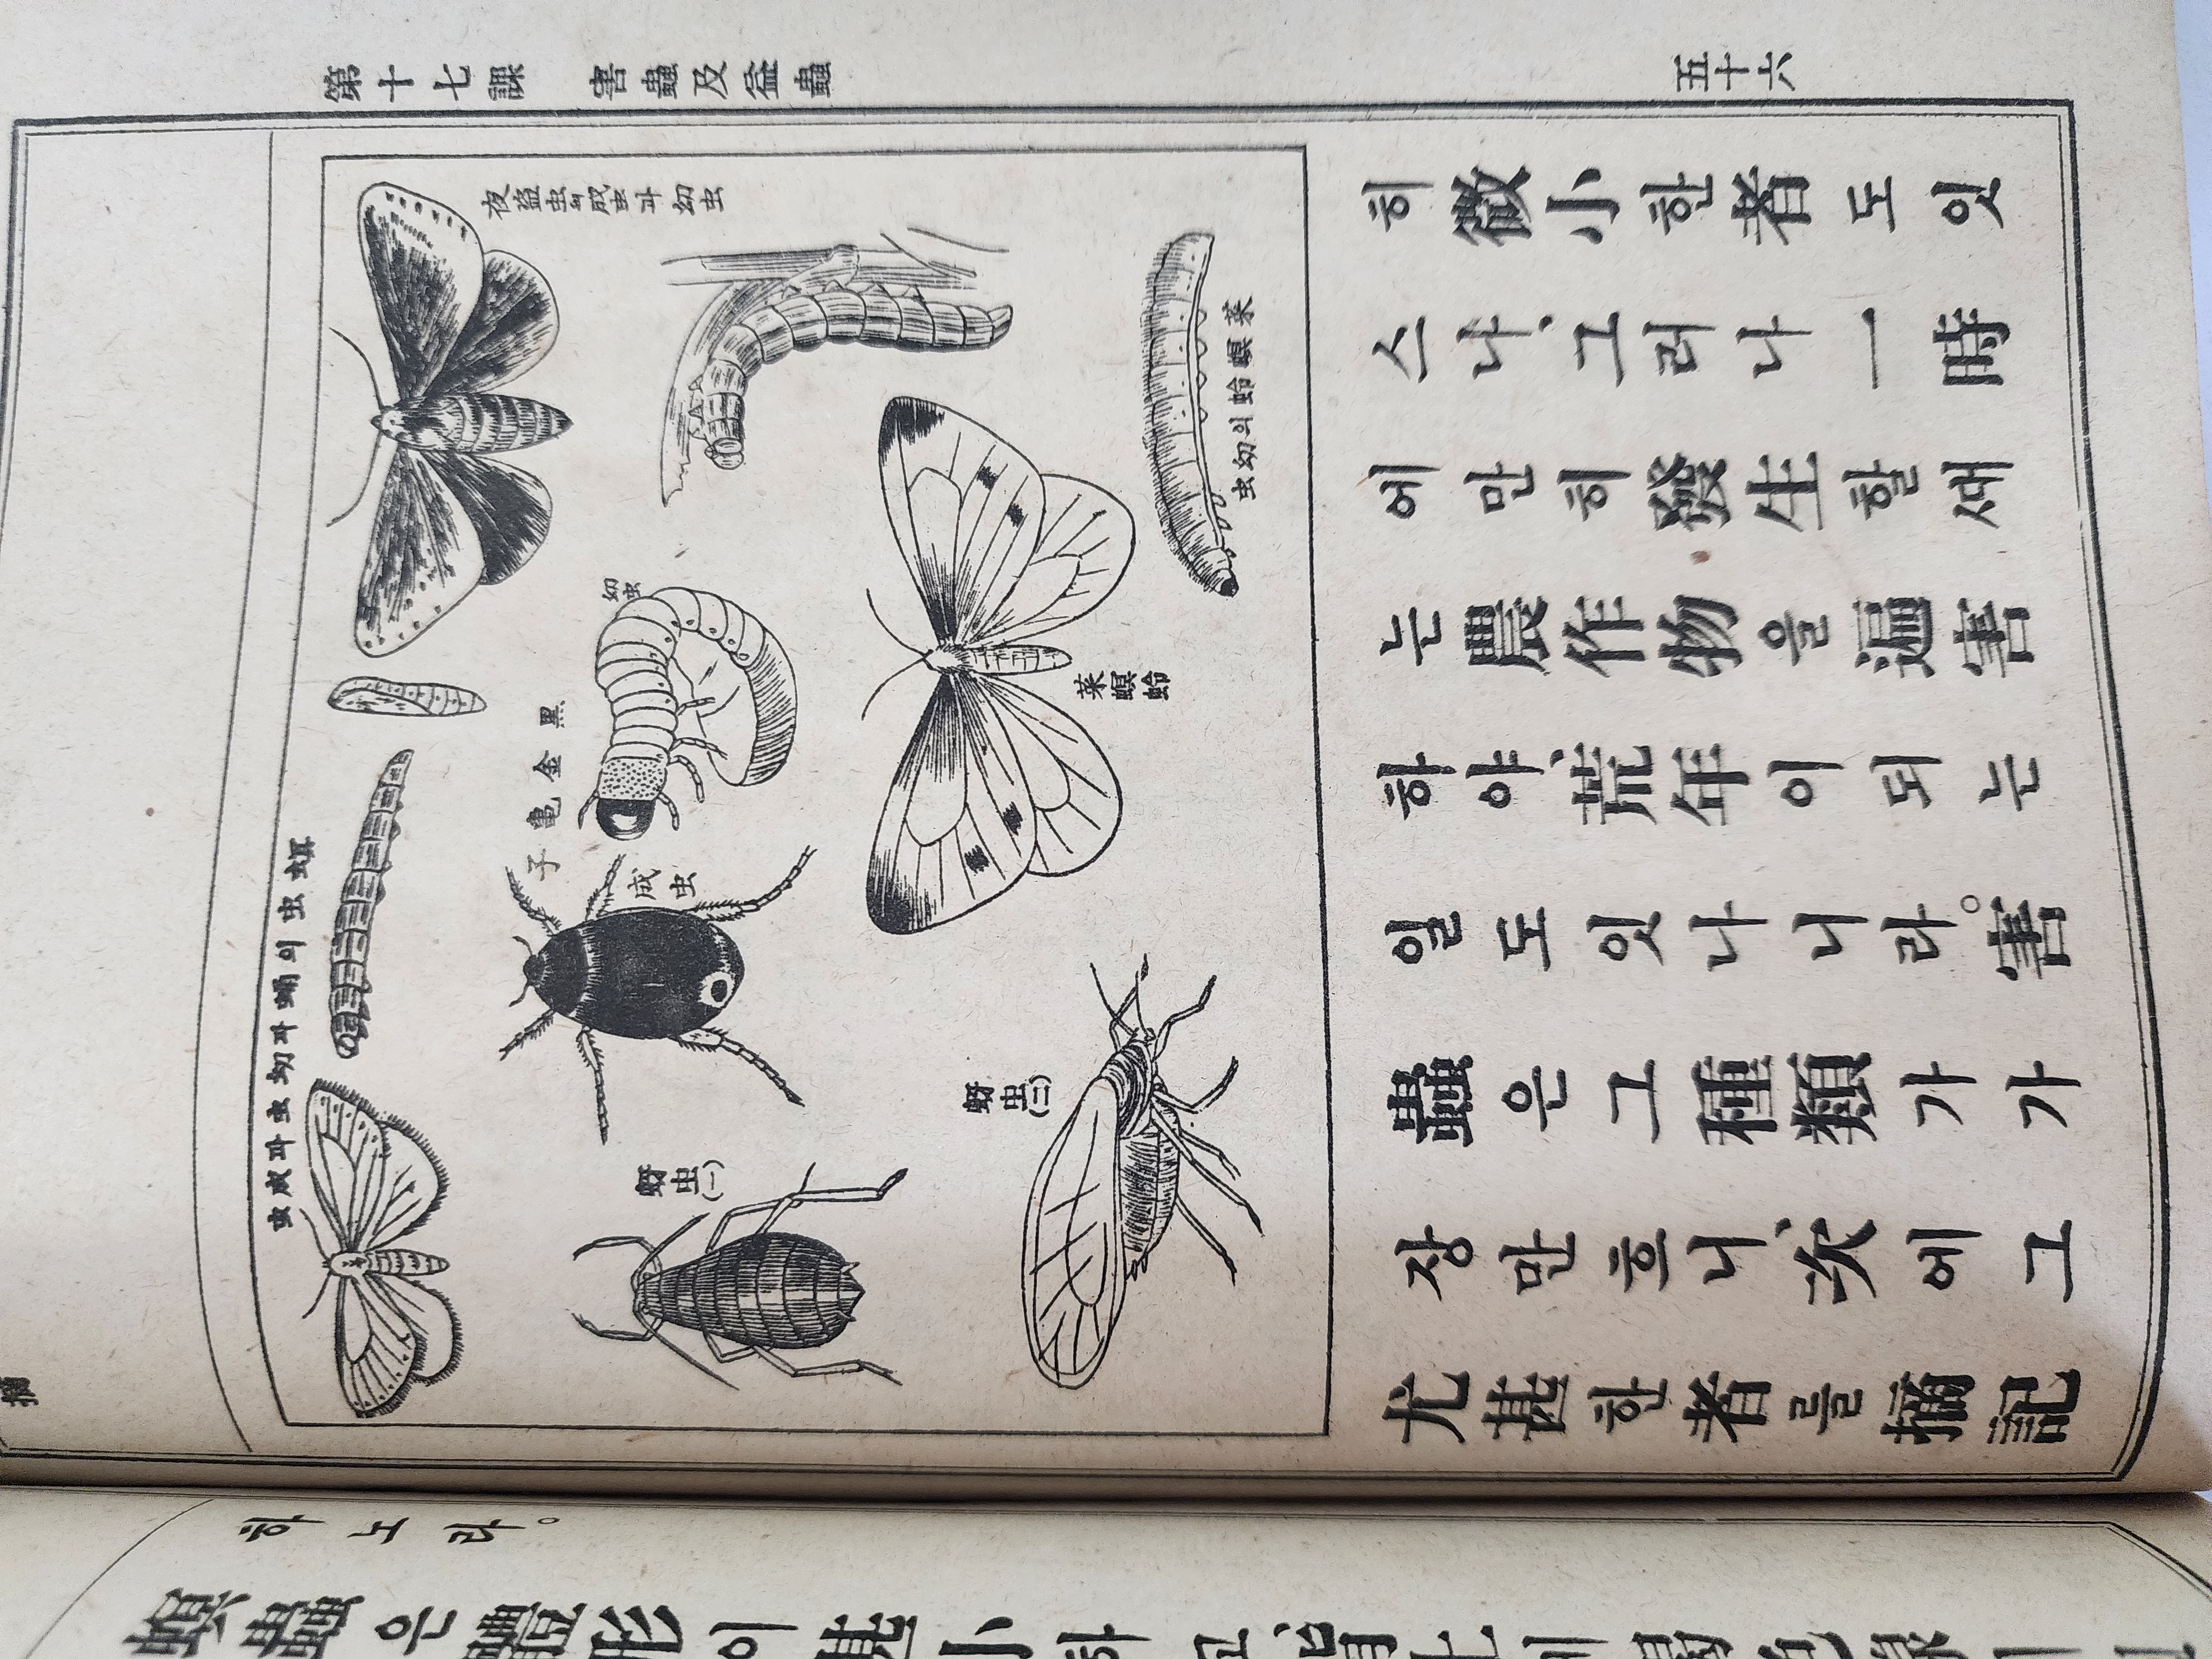 第十七課 害蟲及益蟲
五十六
夜盜虫의成虫과幼虫
螟虫의蛹과幼虫과成虫
黑金亀子
幼虫
成虫
菜螟蛉의幼虫
菜螟蛉
蚜虫(一)
蚜虫(二)
히微小한者도잇
스나、그러나一時
에만히發生할새
는農作物을逼害
하야、荒年이되는
일도잇나니라。害
蟲은그種類가가
장만흐니、次에그
尤甚한者를摘記
摘
하노라。
螟蟲은體形이甚小하고、